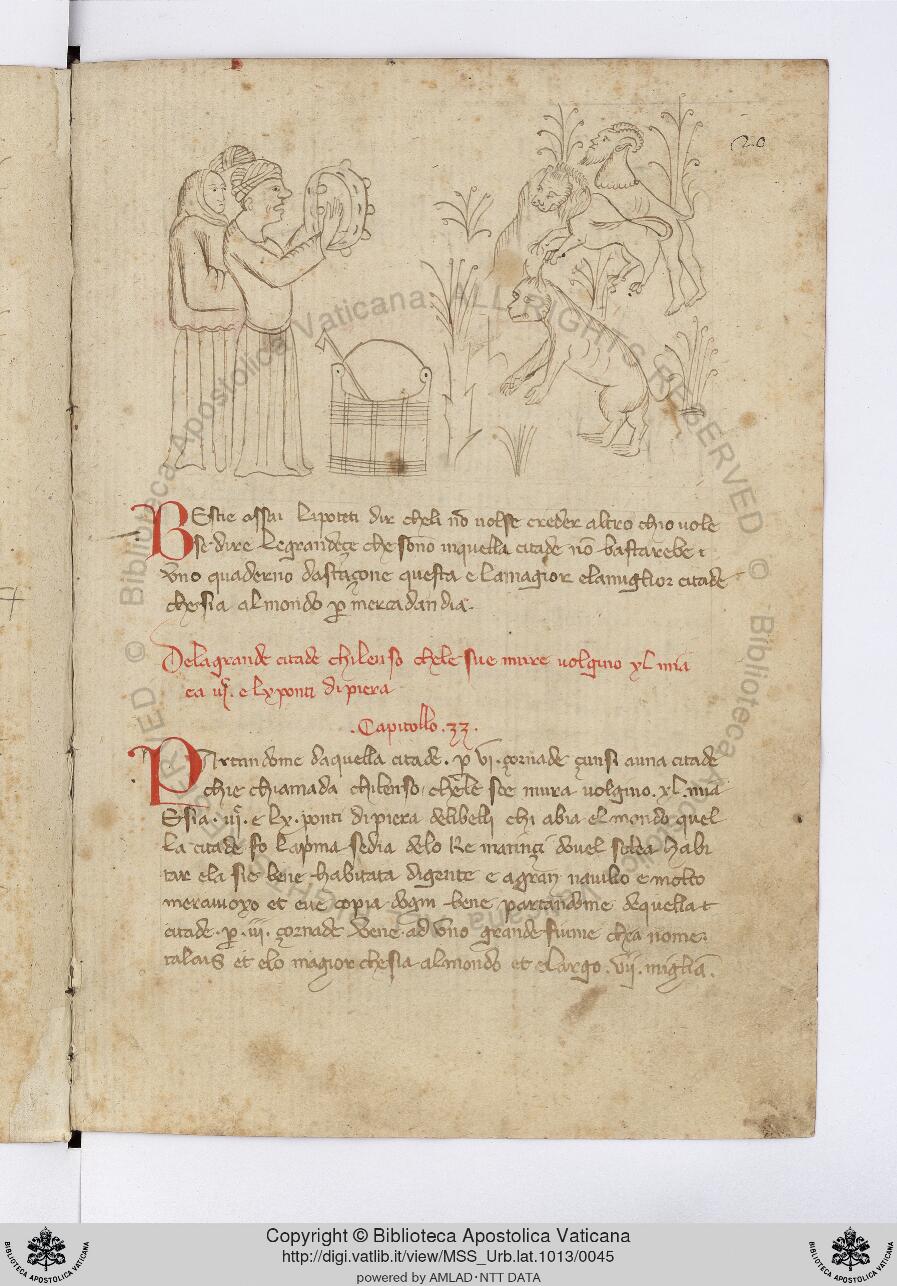 20
Bestie assai li poteti dir cheli nō uolse creder altro chio uole
se dire Le grandeçe che sono in quella citade nō bastarebe ·
vno quaderno da staçone questa e la magior e la miglior citade
che sia al mondo p̄ mercadandia.
Dela grande citade chilenso chele sue mure uolgino xl mia
ca e lx ponti di piera
.Capitollo .33.
Partandome da quella citade . p̄ vi. çornade çunsi a una citade
che chiamada chilenso, chele soe mura uolgino . xl. mia
E sia . e lx. ponti di piera deli belli chi abia el mondo quel
la citade fo la p̄ma sedia delo Re manınçi douel solea habi
tar ela sie bene habitata di gente e a gran nauilio e molto
merauoxo et eue copia dogni bene partandome de quella
citade . p̄ .iii. çornade vene ad vno grande fiume che a nome
talais et e lo magior che sia al mondo et e largo . vii. miglia.
Copyright © Biblioteca Apostolica Vaticana
http://digi.vatlib.it/view/MSS_Urb.lat.1013/0045
powered by AMLAD · NTT DATA
BIBLIOTECA APOSTOLICA VATICANA
BIBLIOTECA APOSTOLICA VATICANA
© Biblioteca Apostolica Vaticana. ALL RIGHTS RESERVED